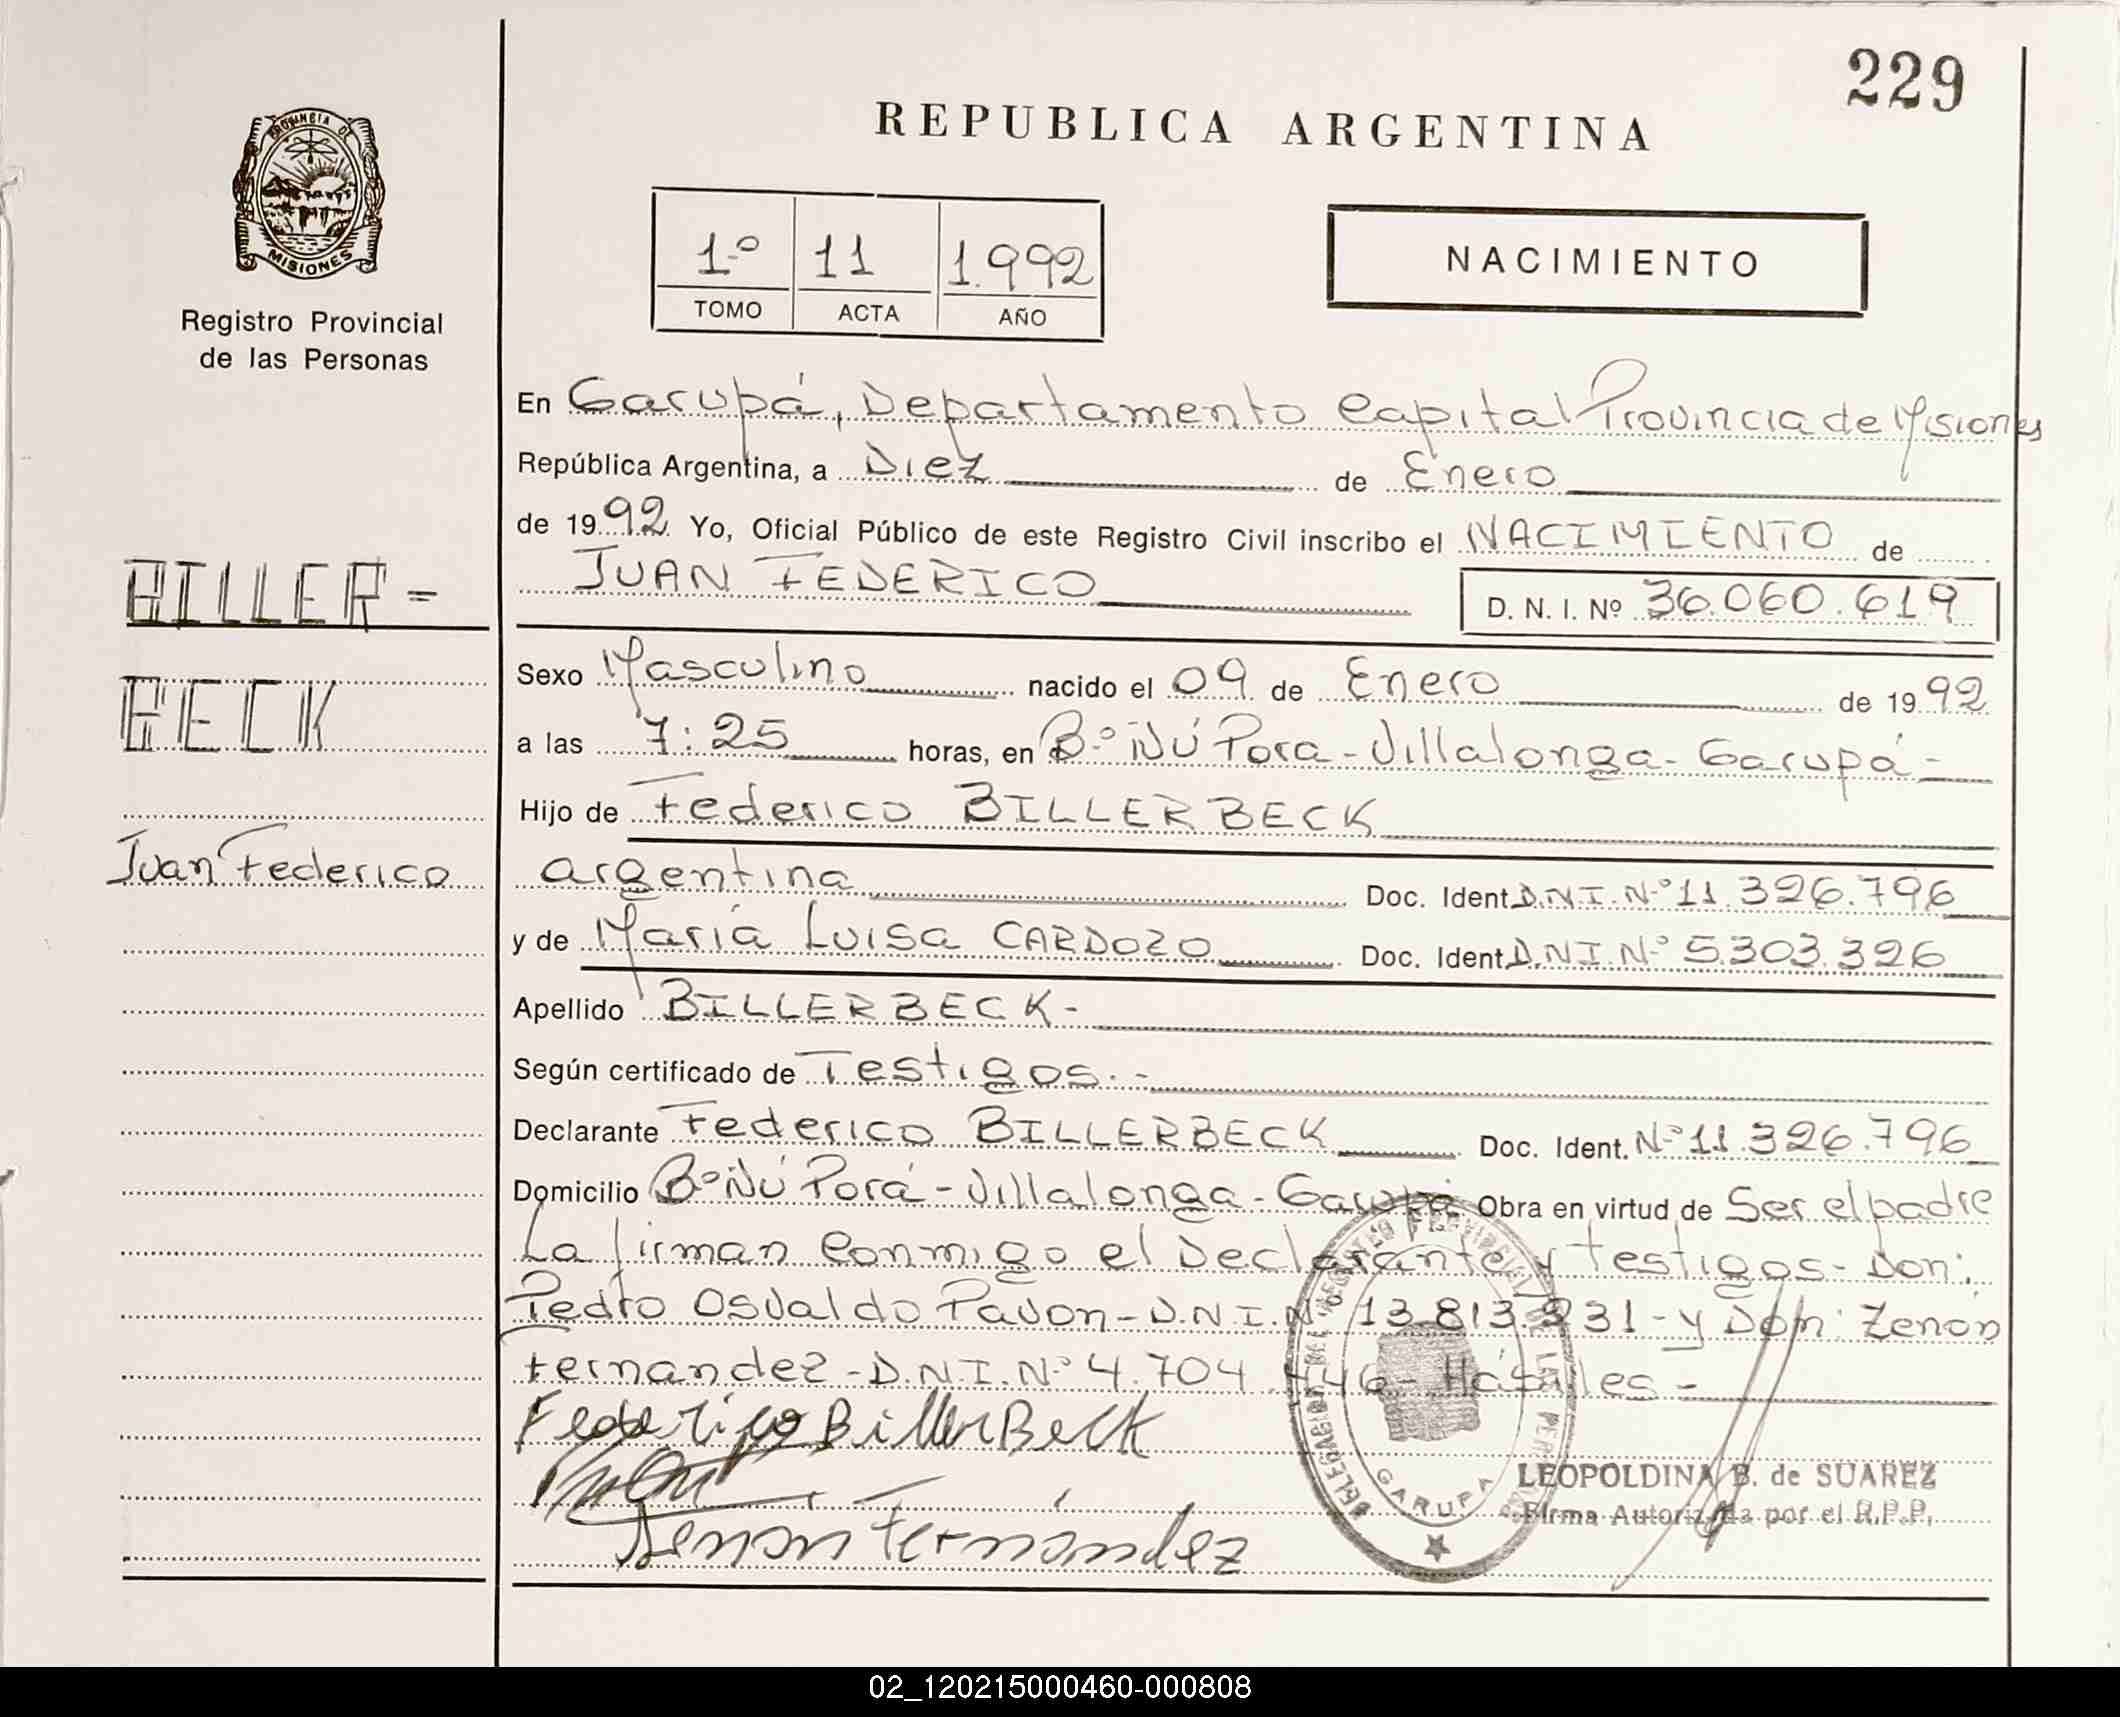 229
REPUBLICA ARGENTINA
PROVINCIA DE
MISIONES
Registro Provincial
de las Personas
1º 11 1.992
TOMO ACTA AÑO
NACIMIENTO
En Garupá, Departamento Capital Provincia de Misiones
República Argentina, a Diez de Enero
de 1992 Yo, Oficial Público de este Registro Civil inscribo el NACIMIENTO de
JUAN FEDERICO D. N. I. Nº 36.060.619
BILLER-
BECK
Juan Federico
Sexo Masculino nacido el 09 de Enero de 1992
a las 7:25 horas, en Bº Ñú Pora-Villalonga-Garupá-
Hijo de Federico BILLERBECK
argentina Doc. Ident D.N.I.Nº 11.326.796
y de María Luisa CARDOZO Doc. Ident. D.N.I.Nº 5.303.326
Apellido BILLERBECK-
Según certificado de Testigos.-
Declarante Federico BILLERBECK Doc. Ident. Nº 11.326.796
Domicilio Bº Ñú Porá-Villalonga-Garupá Obra en virtud de Ser el padre
La firman Conmigo el Declarante y testigos- Don:
Pedro Osvaldo Pavon-D.N.I.Nº 13.813.931-y Don: Zenon
Fernandez-D.N.I.Nº 4.704.446-
Federico BillerBeck
Zenon Fernández
DELEGACION DEL REGISTRO PROVINCIAL DE LAS PERSONAS
GARUPA
LEOPOLDINA B. de SUAREZ
Firma Autorizada por el R.P.P.
02_120215000460-000808